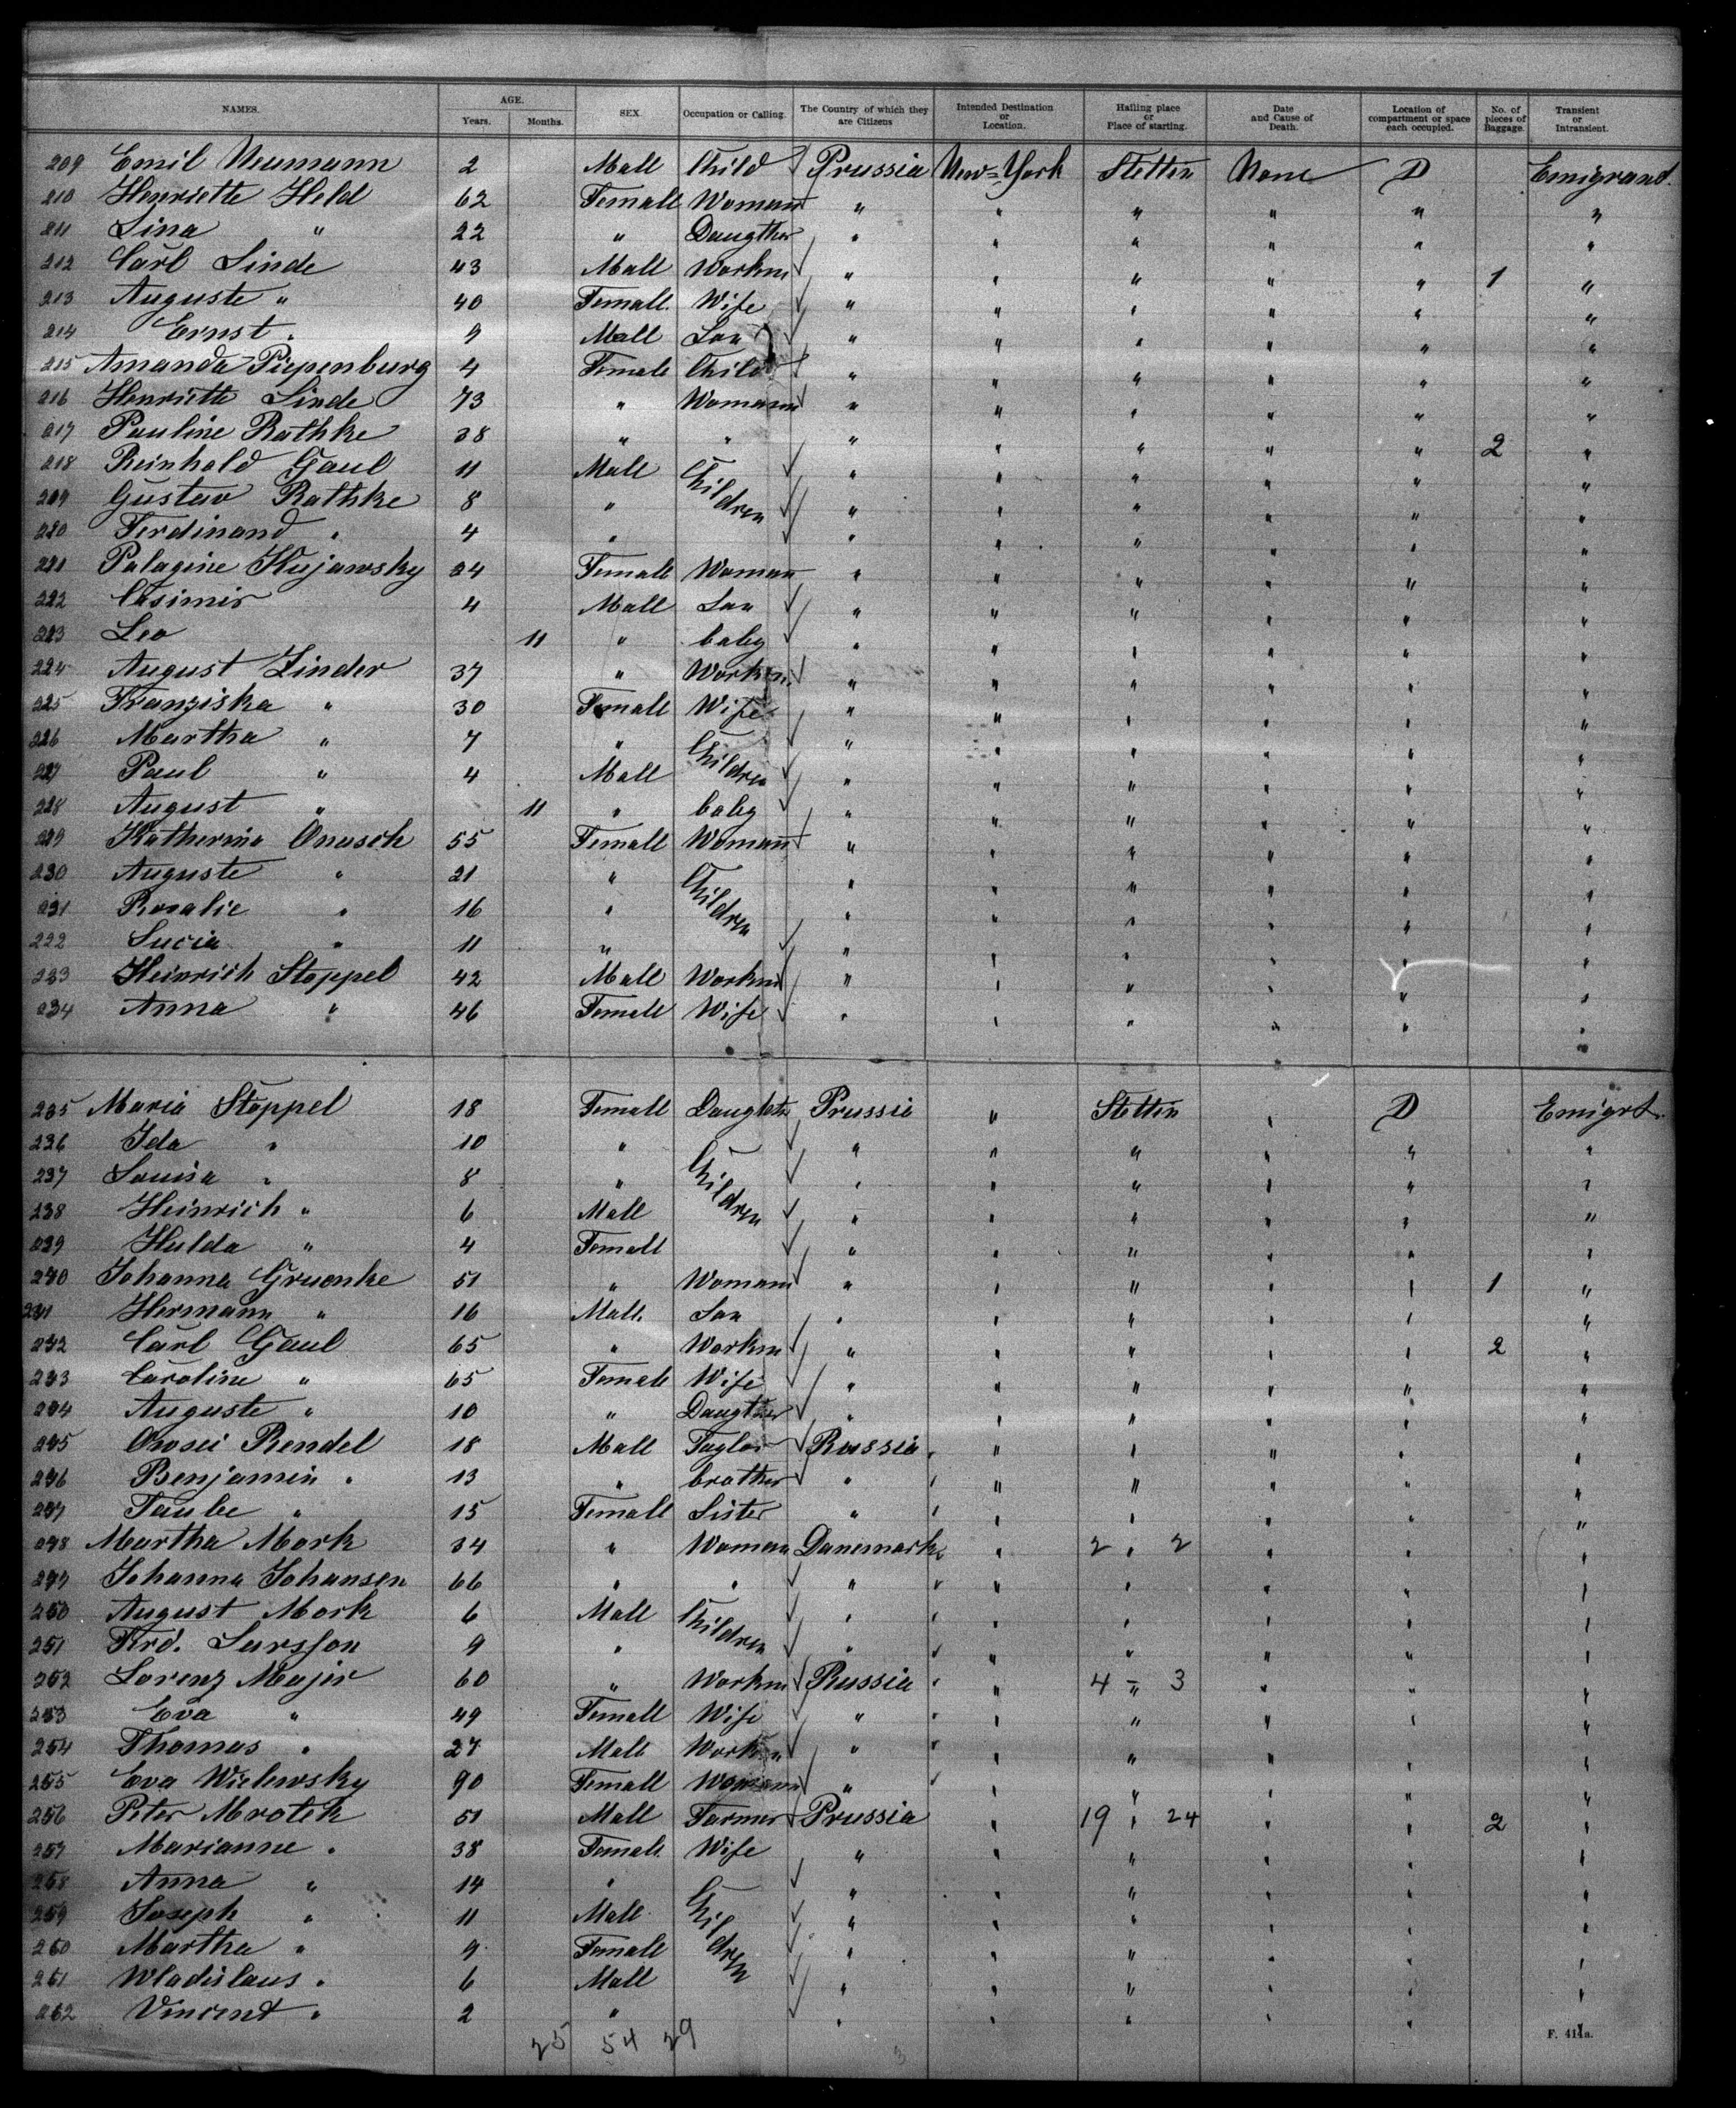 NAMES. AGE. Years. Months. SEX. Occupation or Calling. The Country of which they are Citizens Intended Destination or Location. Hailing place or Place of starting. Date and Cause of Death. Location of compartment or space each occupied. No. of pieces of Baggage. Transient or Intransient.
209 Emil Neumann 2 Mall Child Prussia New-York Stettin None D Emigrand.
210 Henriette Held 62 Femall Woman " " " " " "
211 Lina " 22 " Daugther " " " " " "
212 Carl Linde 43 Mall Workm " " " " " 1 "
213 Auguste " 40 Femall. Wife " " " " " "
214 Ernst " 9 Mall Son " " " " " "
215 Amanda Piepenburg 4 Femall Child " " " " " "
216 Henriette Linde 73 " Womann " " " " " "
217 Pauline Rathke 38 " " " " " " " 2 "
218 Reinhold Gaul 11 Mall Children " " " " " "
219 Gustav Rathke 8 " " " " " " "
220 Ferdinand " 4 " " " " " " "
221 Palagine Kujawsky 24 Femall Woman " " " " " "
222 Casimir 4 Mall Son " " " " " "
223 Leo 11 " baby " " " " " "
224 August Zinder 37 " Workm. " " " " " "
225 Franziska " 30 Femall Wife " " " " " "
226 Martha " 7 " Children " " " " " "
227 Paul " 4 Mall " " " " " "
228 August " 11 " baby " " " " " "
229 Katherina Onusch 55 Femall Womann " " " " " "
230 Auguste " 21 " Children " " " " " "
231 Rosalie " 16 " " " " " " "
232 Lucia " 11 " " " " " " "
233 Heinrich Stoppel 42 Mall Workm " " " " " "
234 Anna " 46 Femall Wife " " " " " "
235 Maria Stoppel 18 Femall Daughtr Prussia " Stettin " D Emigrt.
236 Ida " 10 " Children " " " " " "
237 Louisa " 8 " " " " " " "
238 Heinrich " 6 Mall " " " " " "
239 Hulda " 4 Femall " " " " " "
240 Johanna Gruenke 51 " Womann " " " " " 1 "
241 Hermann " 16 Mall. Son " " " " " "
242 Carl Gaul 65 " Workm " " " " " 2 "
243 Caroline " 65 Femall Wife " " " " " "
244 Auguste " 10 " Daugther " " " " " "
245 Rendel 18 Mall Taylor Russia " " " " "
246 Benjamin " 13 " brother " " " " " "
247 Taube " 15 Femall Sister " " " " " "
248 Martha Mork 34 " Woman Danemark " 2 " 2 " " "
249 Johanna Johansen 66 " " " " " " " "
250 August Mork 6 Mall Children " " " " " "
251 Frd. Larsson 9 " " " " " " "
252 Lorenz Majir 60 " Workm Russia " 4 " 3 " " "
253 Eva " 49 Femall Wife " " " " " "
254 Thomas " 27 Mall Workm " " " " " "
255 Eva Wielewsky 90 Femall Womann " " " " " "
256 Peter Mrotek 51 Mall Farmer Prussia " 19 " 24 " " 2 "
257 Marianne " 38 Femall. Wife " " " " " "
258 Anna " 14 " Children " " " " " "
259 Joseph " 11 Mall " " " " " "
260 Martha " 9 Femall " " " " " "
261 Wladislaus " 6 Mall " " " " " "
262 Vincent " 2 " " " " " " "
25 54 29
F. 414a.